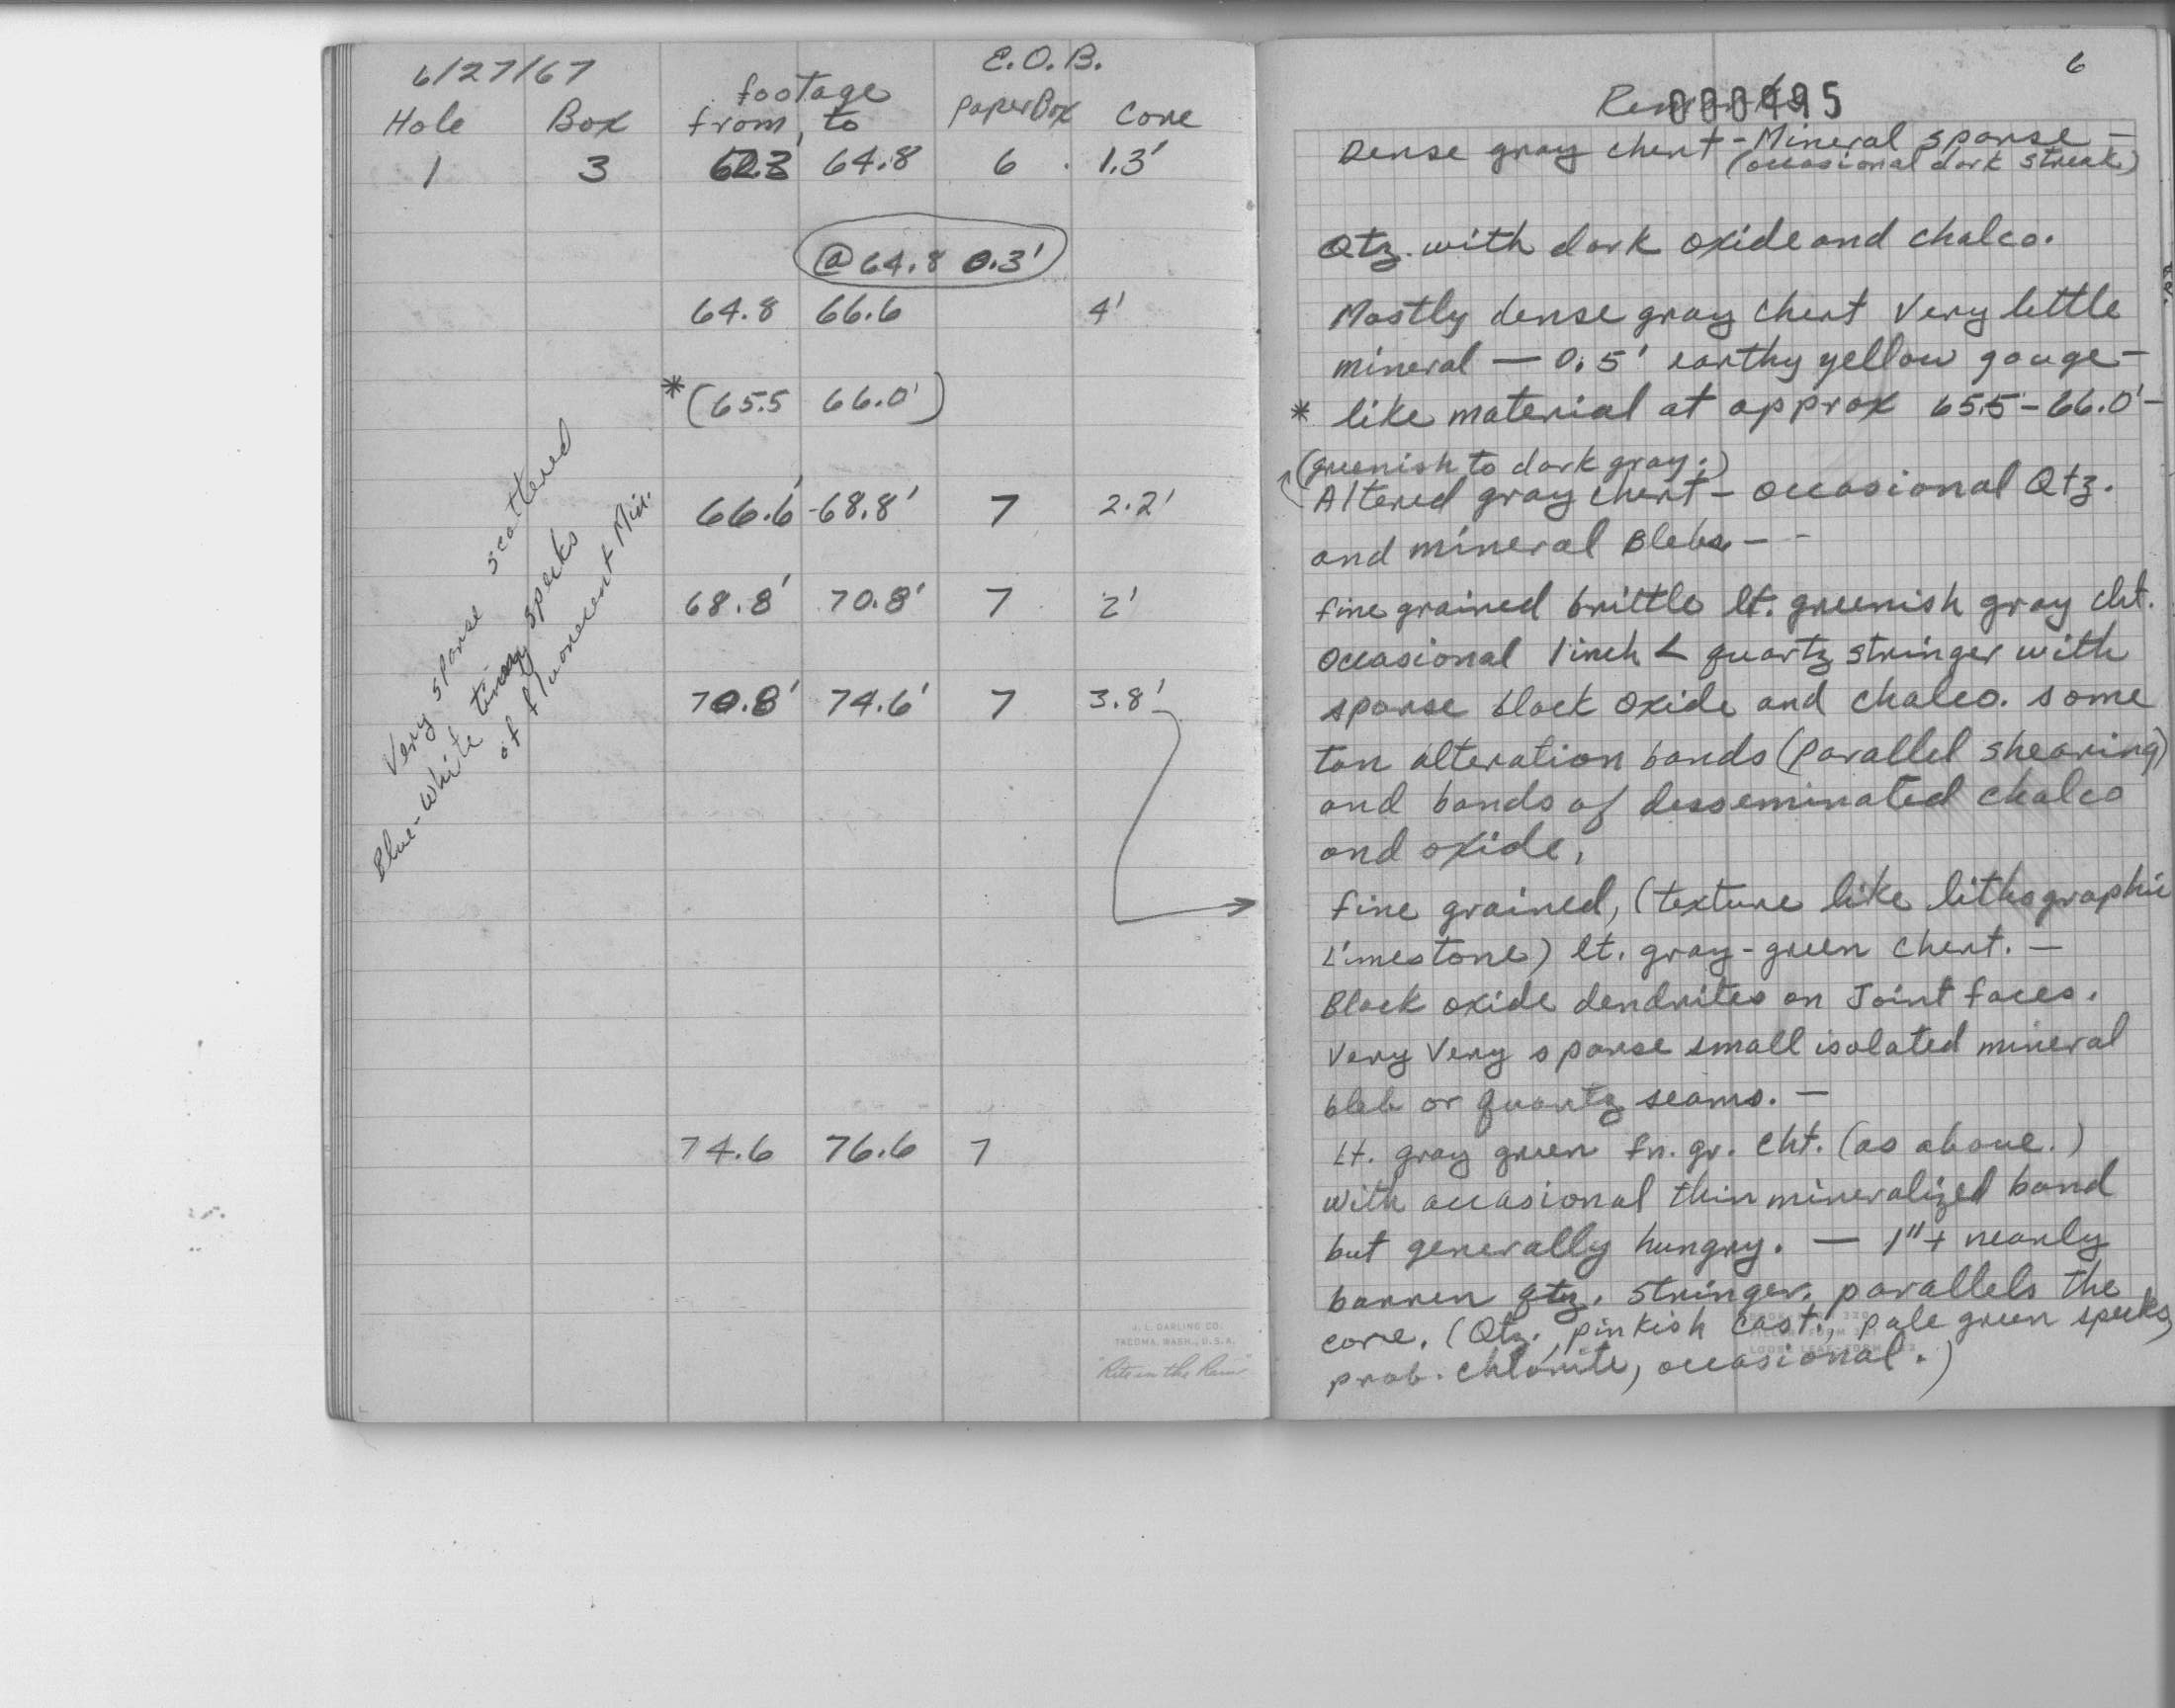 6/27/67
E.O.B.
footage
Hole Box from, to paperBox Core
1 3 64.8 6 1.3'
@ 64.8 0.3'
64.8 66.6 4'
* (65.5 66.0')
66.6' - 68.8' 7 2.2'
68.8' 70.8' 7 2'
70.8' 74.6' 7 3.8'
74.6 76.6 7
Very sparse scattered
Blue-white tiny specks
of fluorescent Min.
J. L. DARLING CO.
TACOMA, WASH., U.S.A.
"Rite in the Rain"
6
Remarks
000495
Dense gray chert - Mineral sparse —
(occasional dark streak)
Qtz. with dark oxide and chalco.
Mostly dense gray chert Very little
mineral — 0.5' earthy yellow gouge —
* like material at approx 65.5 - 66.0' —
(greenish to dark gray.)
Altered gray chert — occasional Qtz.
and mineral Blebs — -
fine grained brittle lt. greenish gray cht.
Occasional 1 inch < quartz stringer with
sparse black oxide and chalco. some
tan alteration bands (parallel shearing)
and bands of desseminated chalco
and oxide.
fine grained, (texture like lithographic
Limestone) lt. gray-green chert. —
Black oxide dendrites on Joint faces.
Very Very sparse small isolated mineral
bleb or quartz seams. —
Lt. gray green fn. gr. cht. (as above.)
with occasional thin mineralized band
but generally hungry. — 1"+ nearly
barren qtz. stringer, parallels the
core. (Qtz., pinkish cast, pale green specks,
prob. chlorite, occasional.)